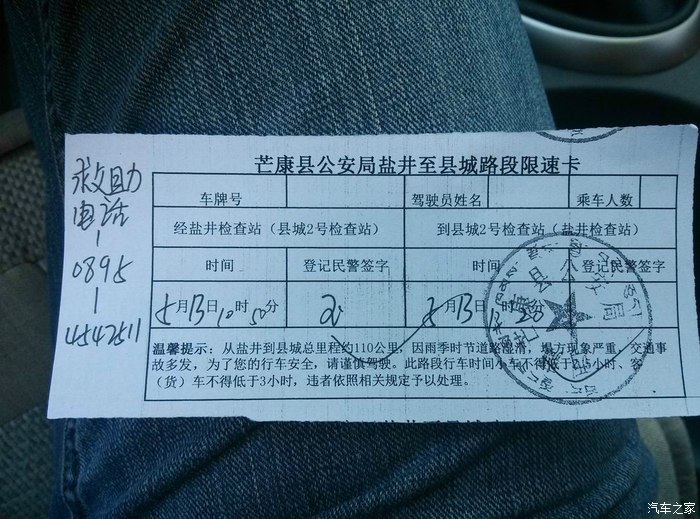 芒康县公安局盐井至县城路段限速卡
车牌号 驾驶员姓名 乘车人数
经盐井检查站（县城2号检查站） 到县城2号检查站（盐井检查站）
时间 登记民警签字 时间 登记民警签字
5月13日10时50分 5月13日 时 分
温馨提示：从盐井到县城总里程约110公里，因雨季时节道路湿滑，塌方现象严重，交通事
故多发，为了您的行车安全，请谨慎驾驶。此路段行车时间小车不得低于2.5小时、
（货）车不得低于3小时，违者依照相关规定予以处理。
求助
电话
0895
4542511
汽车之家